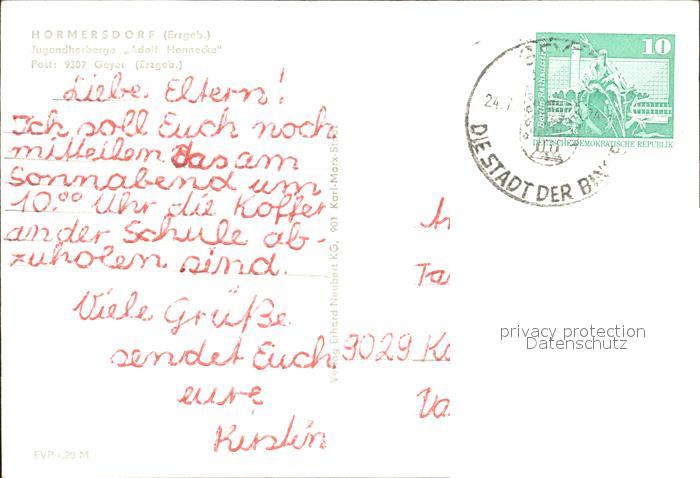 HORMERSDORF (Erzgeb.)
Jugendherberge „Adolf Hennecke"
Post: 9307 Geyer (Erzgeb.)
Liebe Eltern!
Ich soll Euch noch
mitteilen das am
Sonnabend um
10.00 Uhr die Koffer
an der Schule ab-
zuholen sind.
Viele Grüße
sendet Euch
eure
Kirstin
EVP -,20 M
Verlag Erhard Neubert KG, 901 Karl-Marx-Stadt
24.7
DIE STADT DER
10
Berlin, Rathausstr.
DEUTSCHE DEMOKRATISCHE REPUBLIK
9029 Ka
privacy protection
Datenschutz